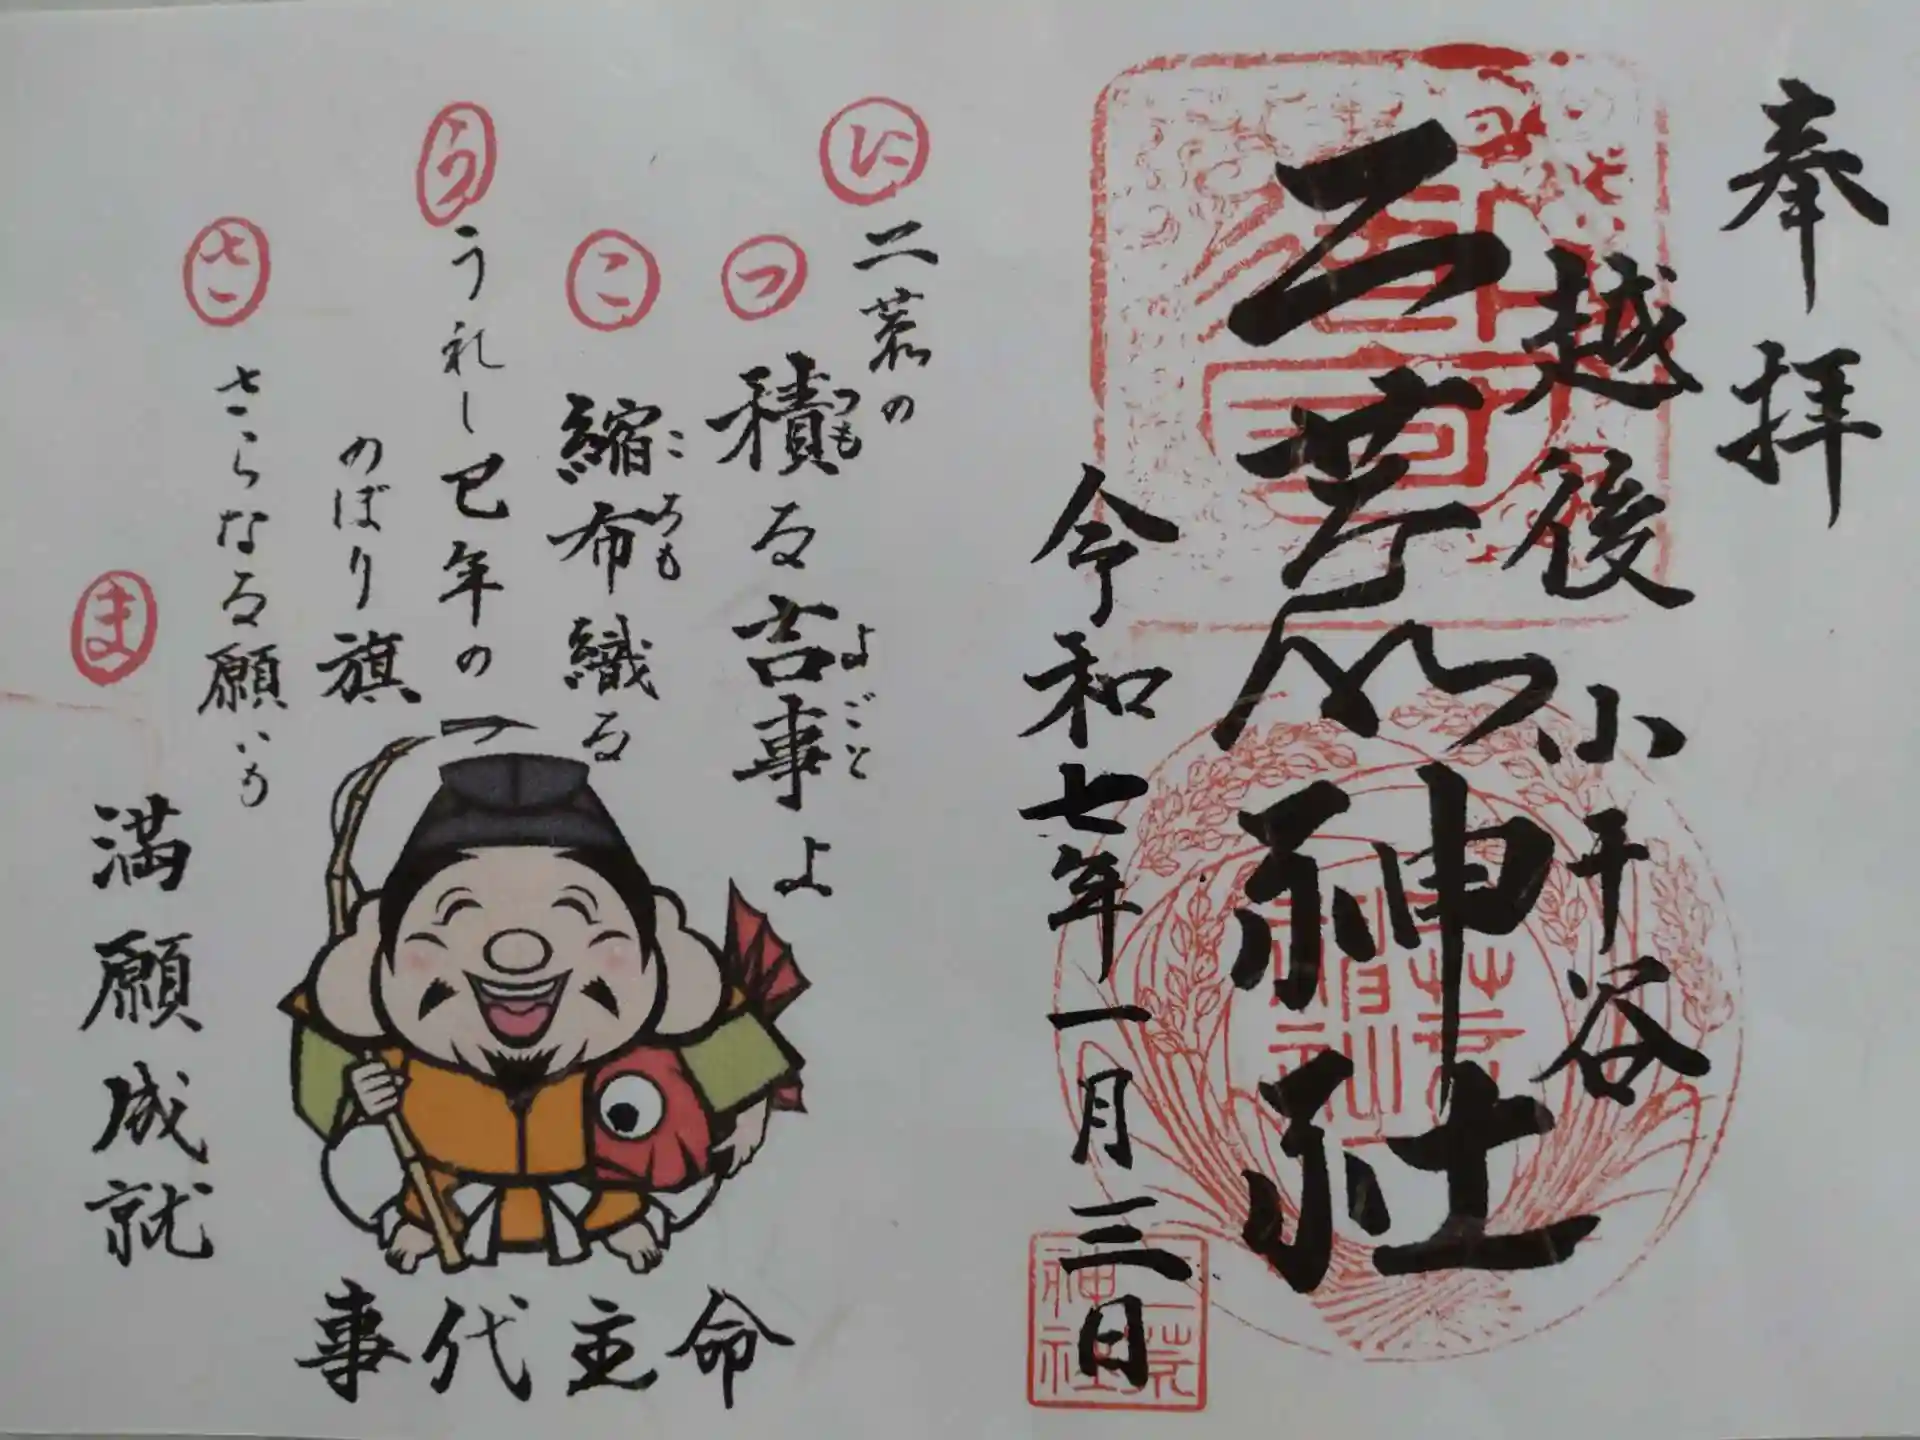 奉拝
越後
小千谷
二荒神社
令和七年一月三日
二荒神社
に
二荒の
つ
積る吉事よ
つも
よごと
こ
縮布織る
ころも
う
うれし巳年の
のぼり旗
さ
さらなる願い
ま
満願成就
事代主命